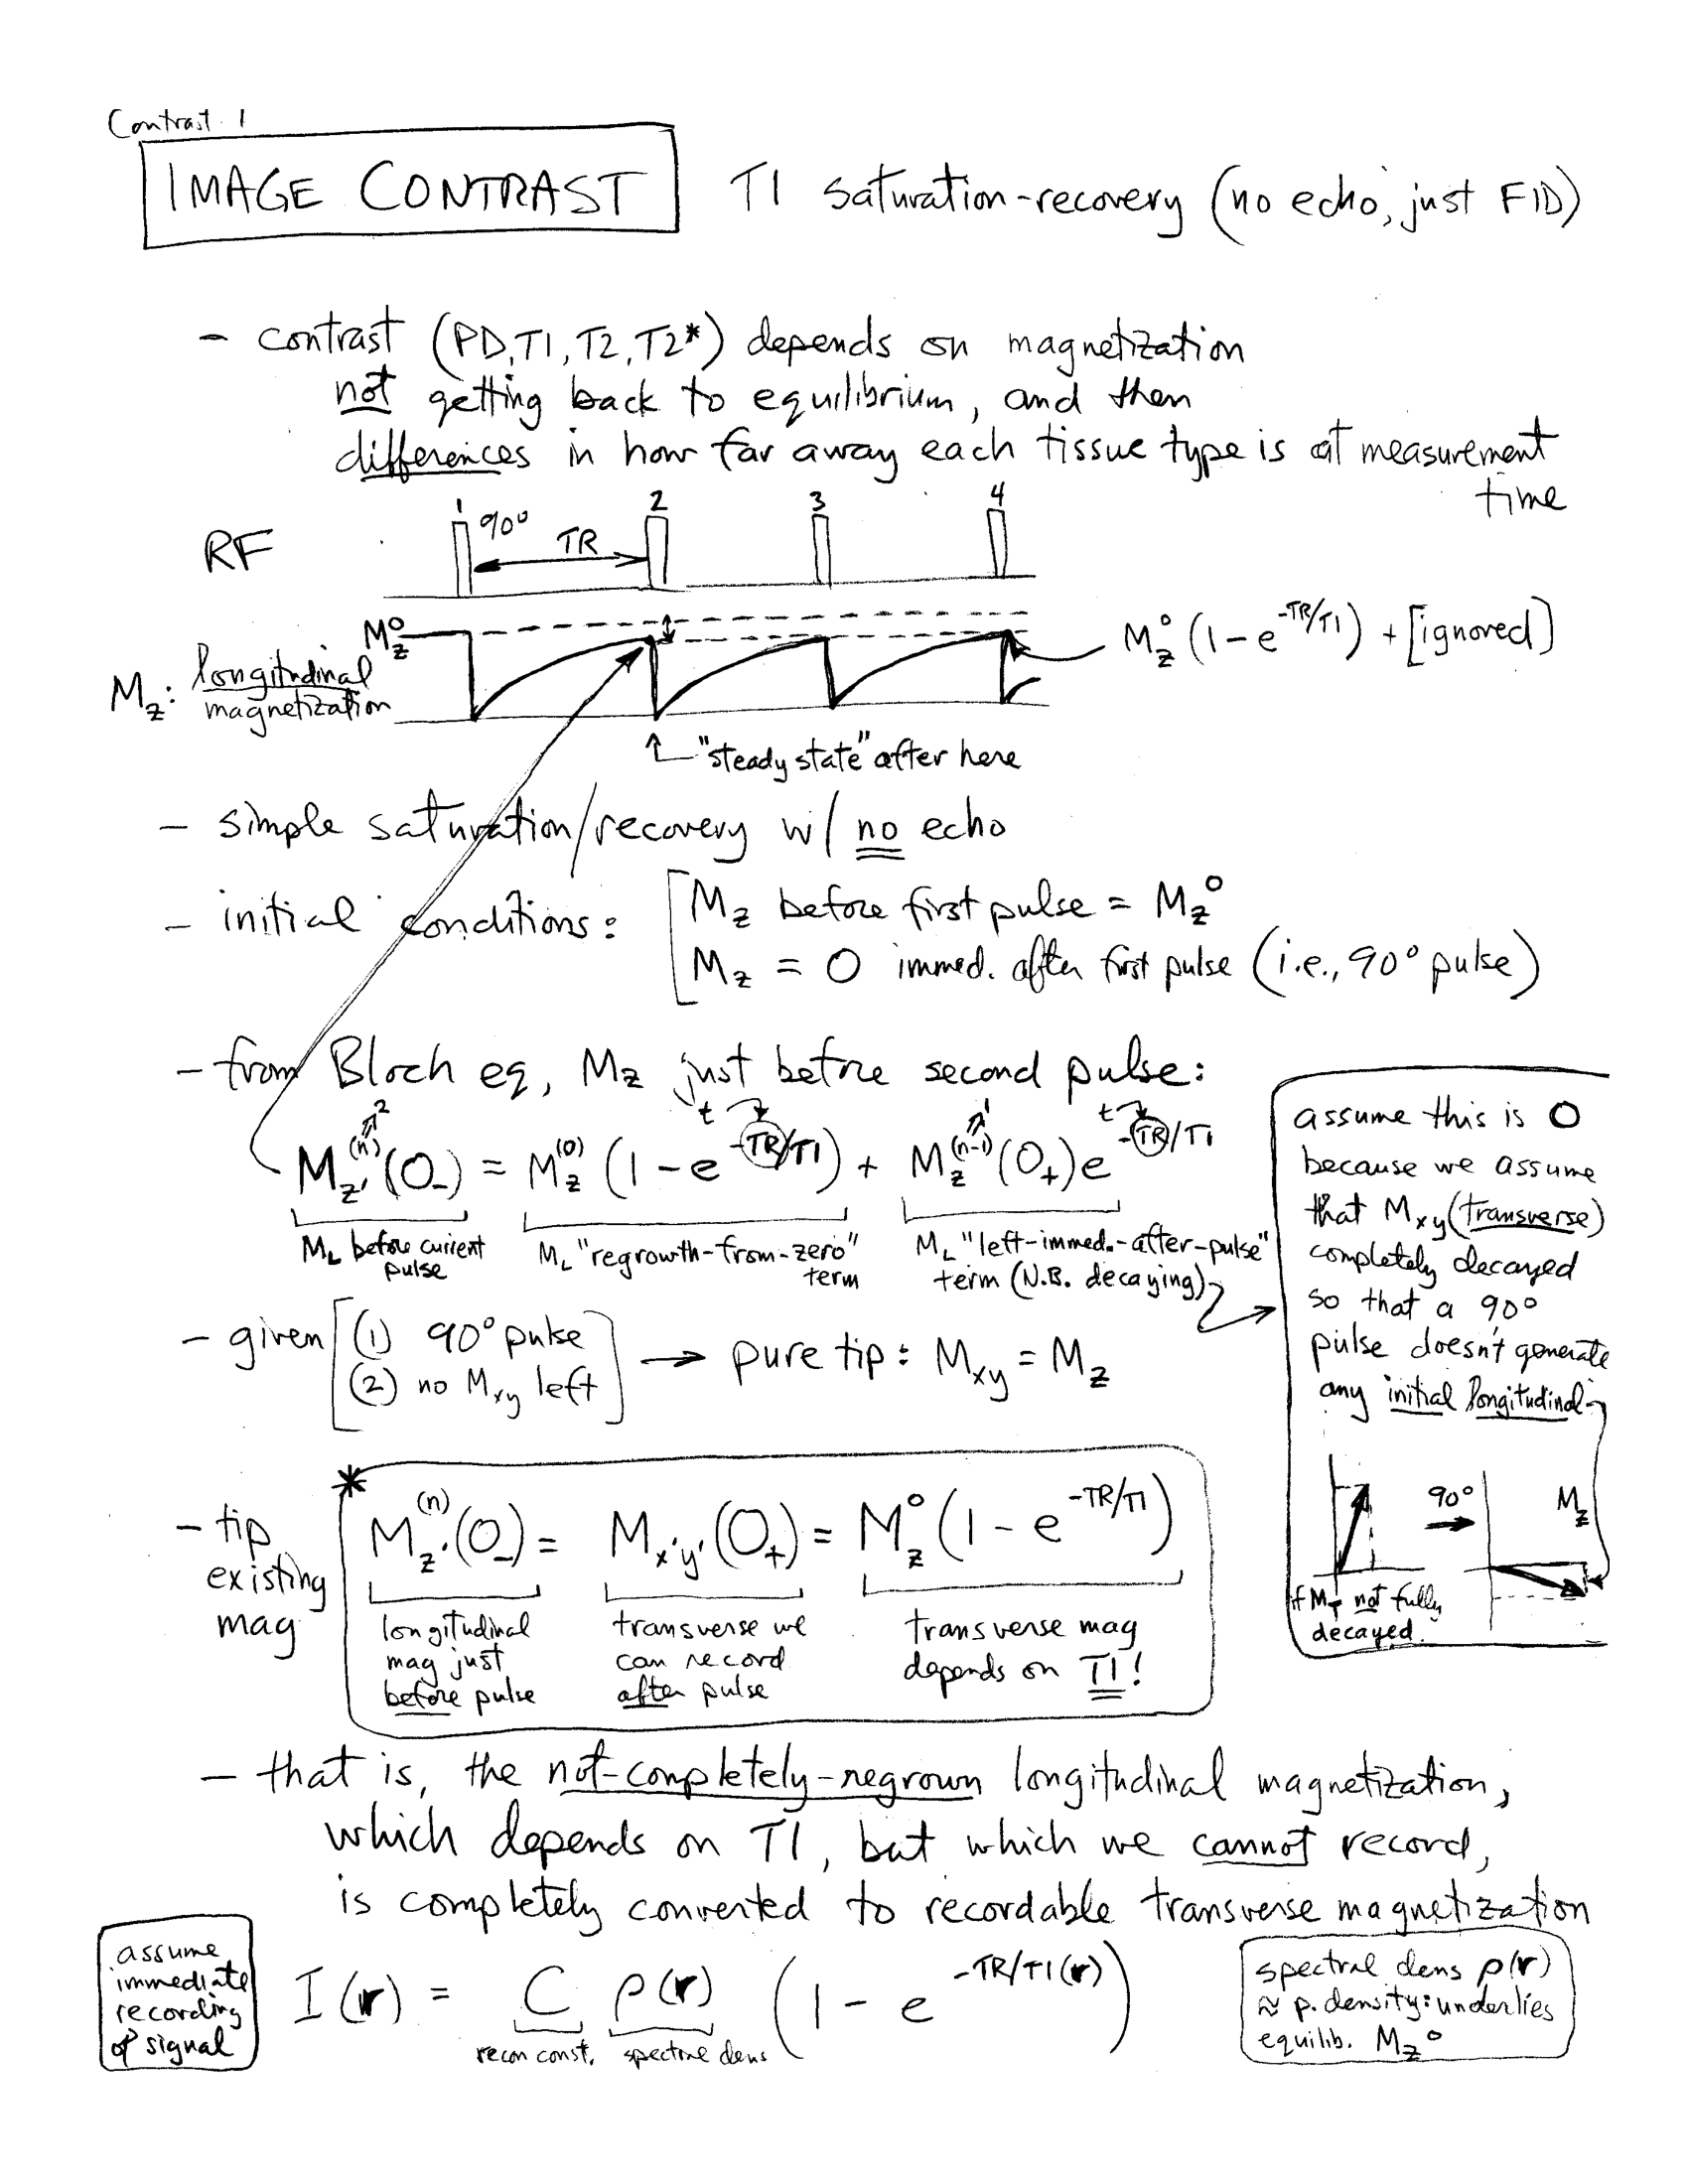 Contrast 1
IMAGE CONTRAST
T1 saturation-recovery (no echo, just FID)
- contrast (PD, T1, T2, T2*) depends on magnetization
not getting back to equilibrium, and then
differences in how far away each tissue type is at measurement
time
RF
1 90° 2 3 4
TR
M_z^0
M_z^0 (1 - e^{-TR/T1}) + [ignored]
M_z: longitudinal
magnetization
"steady state" after here
- simple saturation/recovery w/ no echo
- initial conditions: [M_z before first pulse = M_z^0
M_z = 0 immed. after first pulse (i.e., 90° pulse)
- from Bloch eq, M_z just before second pulse:
2 t 1 t
M_{z'}^{(n)}(0_-) = M_z^{(0)} (1 - e^{-TR/T1}) + M_z^{(n-1)}(0_+) e^{-TR/T1}
M_L before current
pulse
M_L "regrowth-from-zero"
term
M_L "left-immed.-after-pulse"
term (N.B. decaying)
assume this is 0
because we assume
that M_xy (transverse)
completely decayed
so that a 90°
pulse doesn't generate
any initial longitudinal
90° M_z
if M_T not fully
decayed.
- given [(1) 90° pulse
(2) no M_xy left] → pure tip: M_xy = M_z
- tip
existing
mag
* M_{z'}^{(n)}(0_-) = M_{x'y'}(0_+) = M_z^0 (1 - e^{-TR/T1})
longitudinal
mag just
before pulse
transverse we
can record
after pulse
transverse mag
depends on T1!
- that is, the not-completely-regrown longitudinal magnetization,
which depends on T1, but which we cannot record,
is completely converted to recordable transverse magnetization
assume
immediate
recording
of signal
I(r) = C ρ(r) (1 - e^{-TR/T1(r)})
recon const. spectral dens
spectral dens ρ(r)
≈ p. density: underlies
equilib. M_z^0